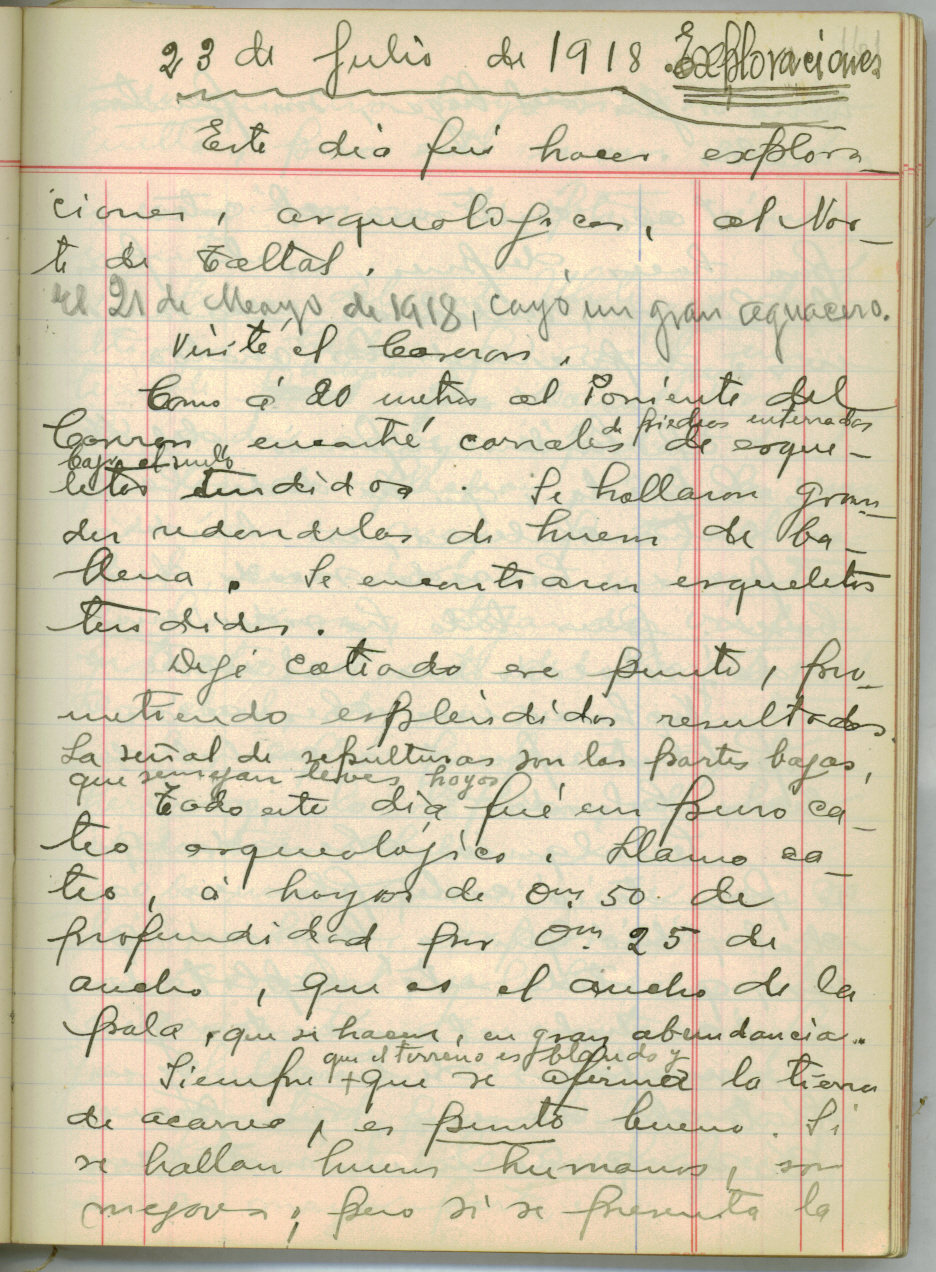 23 de Julio de 1918. Exploraciones
Este dia fuí hacer explora-
ciones, arqueológicas, al Nor-
te de Taltal.
El 21 de Mayo de 1918, cayó un gran aguacero.
Visité el Caseron.
Como á 20 metros al Poniente del
de piedras enterradas
Caseron, encontré corrales de esque-
bajo el suelo
letos tendidos. Se hallaron gran-
des redondelas de hueso de ba-
llena. Se encontraron esqueletos
tendidos.
Dejé cateado ese punto, pro-
metiendo espléndidos resultados.
La señal de sepulturas son las partes bajas,
que semejan leves hoyos
Todo este dia fué un puro ca-
teo arqueológico. Llamo ca-
teo, á hoyos de 0m. 50. de
profundidad por 0m. 25 de
ancho, que es el ancho de la
pala, que se hacen, en gran abundancia.
que el terreno es blando y
Siempre + que se afirma la tierra
de acarreo, es punto bueno. Si
se hallan huesos humanos, son
mejores, pero si se presenta la